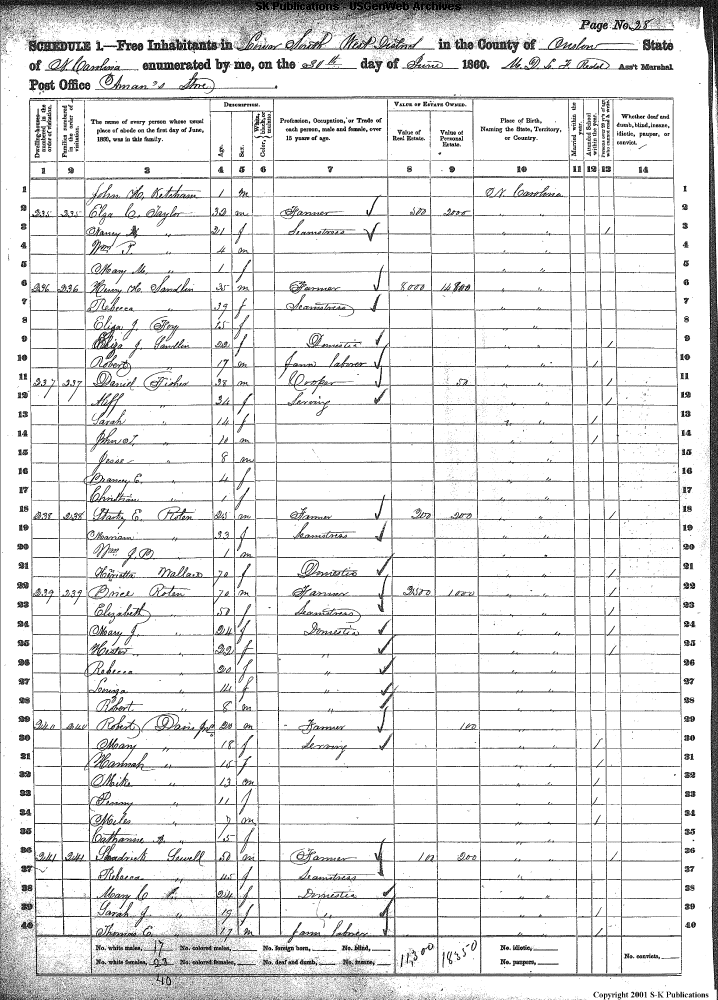 SK Publications - USGenWeb Archives
Page No. 28
SCHEDULE 1.—Free Inhabitants in South West District in the County of Onslow State
of N. Carolina enumerated by me, on the 30th day of June 1860. Ass't Marshal
Post Office Store
Dwelling-houses—numbered in the order of visitation.
Families numbered in the order of visitation.
The name of every person whose usual place of abode on the first day of June, 1860, was in this family.
DESCRIPTION.
Age.
Sex.
Color, White, black, or mulatto.
Profession, Occupation, or Trade of each person, male and female, over 15 years of age.
VALUE OF ESTATE OWNED.
Value of Real Estate.
Value of Personal Estate.
Place of Birth, Naming the State, Territory, or Country.
Married within the year.
Attended School within the year.
Persons over 20 y'rs of age who cannot read & write.
Whether deaf and dumb, blind, insane, idiotic, pauper, or convict.
1 2 3 4 5 6 7 8 9 10 11 12 13 14
1 John H. Ketcham 1 m N. Carolina 1
2 235 235 Taylor 32 m Farmer 500 2000 " " 2
3 Nancy " 21 f Seamstress " " / 3
4 Wm P. " 4 m " " 4
5 Mary M. " 1 f " " 5
6 236 236 Henry H. Sandlin 35 m Farmer 8000 14800 " " 6
7 Rebecca " 39 f Seamstress " " 7
8 Eliza J. 15 f " " 8
9 Eliza J. Sandlin 22 f Domestic " " / 9
10 Robert " 17 m farm laborer " " / 10
11 237 237 Daniel Fisher 38 m Cooper 50 " " / 11
12 34 f Serving " " / 12
13 Sarah " 14 f " " / 13
14 John " 10 m " " / 14
15 Jesse " 8 m " " 15
16 E. " 4 f " " 16
17 Christian " 1 f " " 17
18 238 238 E. Roten 25 m Farmer 200 200 " " / 18
19 " 33 f Seamstress " " 19
20 Wm J. B. " 1 m " " 20
21 Henrietta Wallace 70 f Domestic " " / 21
22 239 239 Brice Roten 70 m Farmer 2500 1000 " " / 22
23 Elizabeth " 50 f Seamstress " " / 23
24 Mary J. " 24 f Domestic " " / 24
25 Hester " 22 f " " " / 25
26 Rebecca " 20 f " " " 26
27 " 14 f " " " 27
28 Robert " 8 m " " " 28
29 240 240 Robert Davis 20 m Farmer 100 " " 29
30 Mary " 18 f Serving " " / 30
31 Hannah " 15 f " " / 31
32 Mike " 13 m " " / 32
33 Penny " 11 f " " / 33
34 Miles " 7 m " " / 34
35 Catharine A. " 5 f " " 35
36 241 241 Shadrick Sewell 50 m Farmer 100 200 " " / 36
37 Rebecca " 45 f Seamstress " " 37
38 Mary C. " 24 f Domestic " " 38
39 Sarah J. " 19 f " " " / 39
40 Thomas E. " 17 m farm laborer " " / 40
No. white males, 17 No. colored males, No. foreign born, No. blind, 11,300 18350 No. idiotic, No. convicts,
No. white females, 23 No. colored females, No. deaf and dumb, No. insane, No. paupers,
40
Copyright 2001 S-K Publications